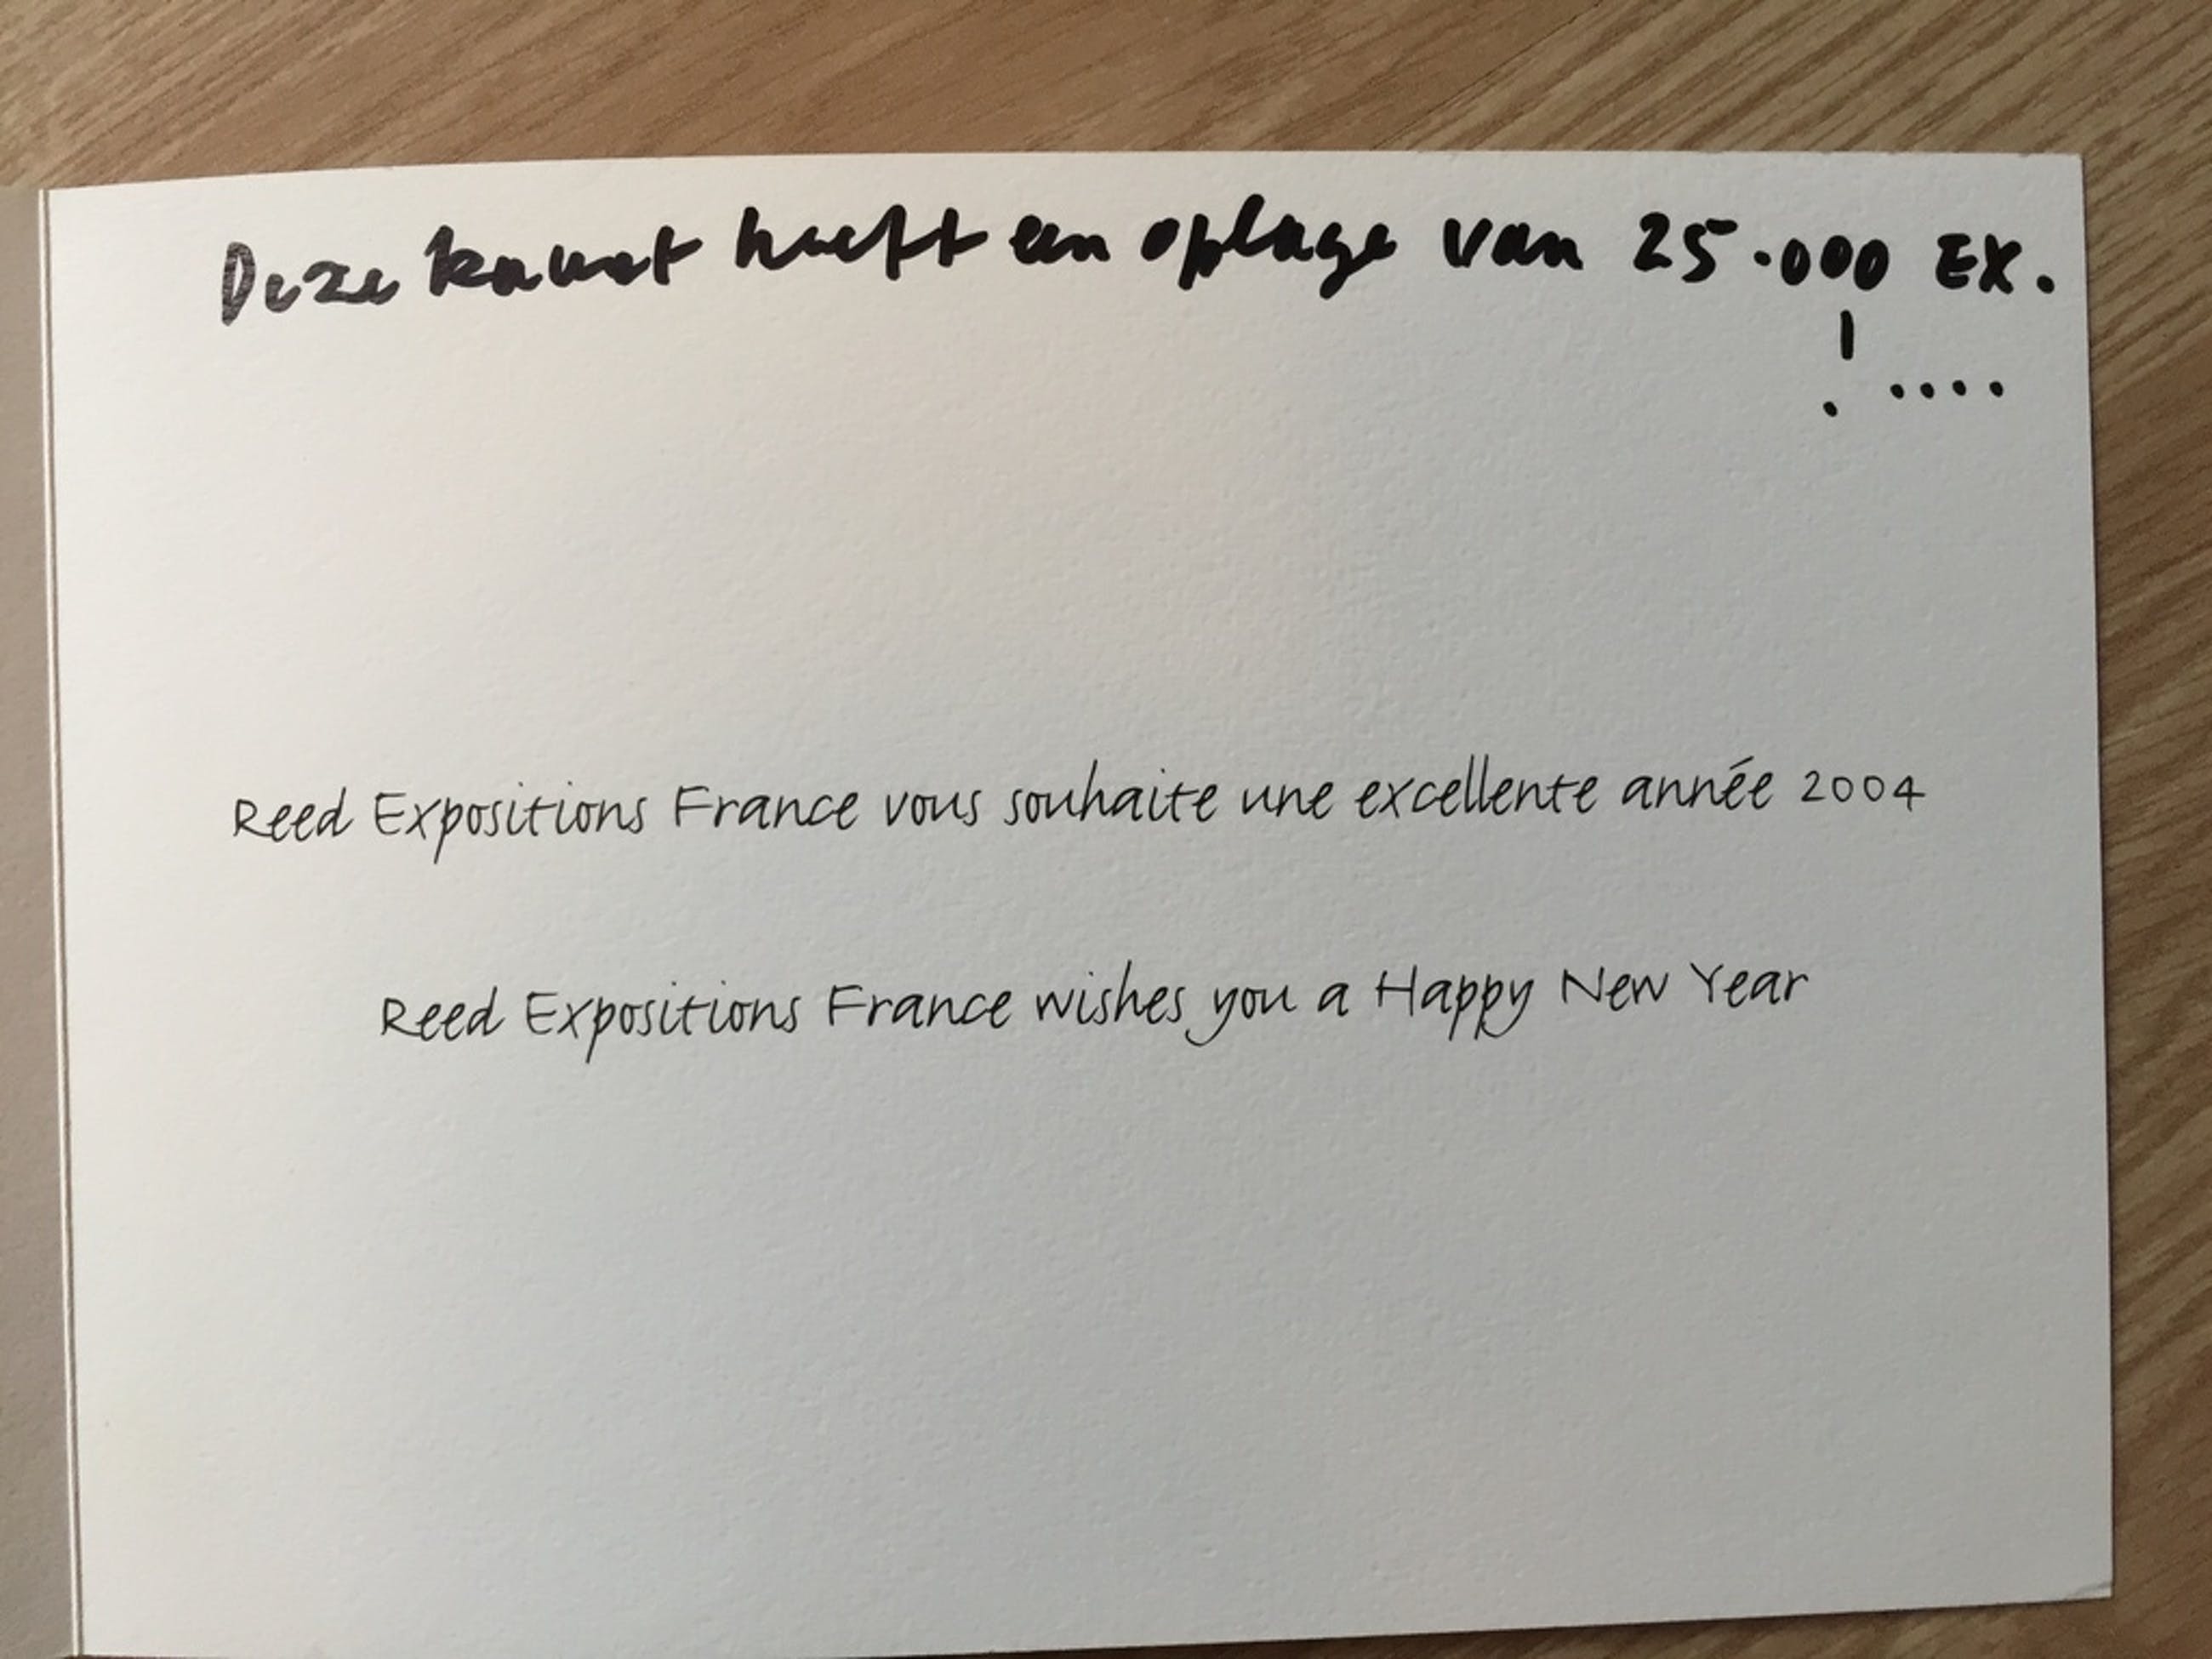 Deze kaart heeft een oplage van 25.000 EX.
! ....
Reed Expositions France vous souhaite une excellente année 2004
Reed Expositions France wishes you a Happy New Year